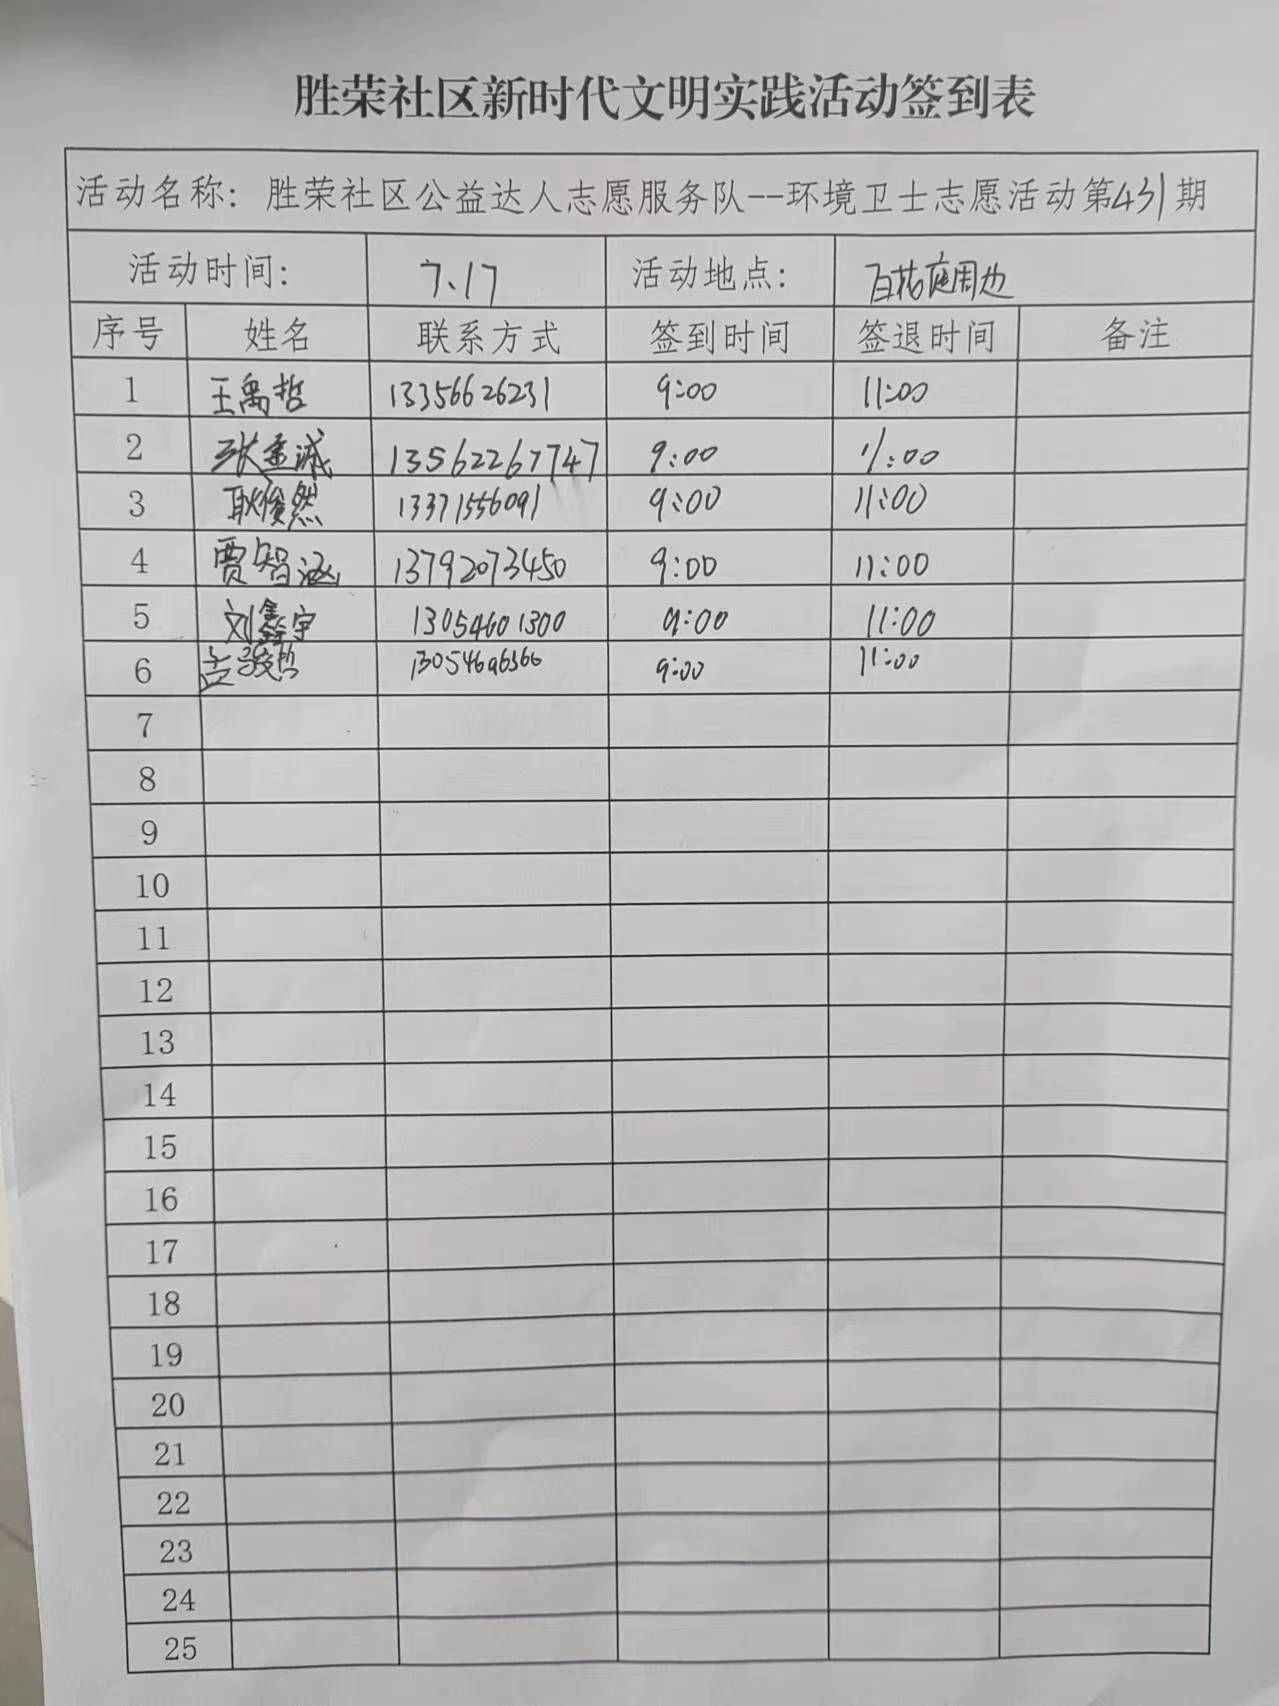 胜荣社区新时代文明实践活动签到表
活动名称：胜荣社区公益达人志愿服务队--环境卫士志愿活动第431期
活动时间： 7.17 活动地点： 百花庭周边
序号 姓名 联系方式 签到时间 签退时间 备注
1 王禹哲 13356626231 9:00 11:00
2 张孟诚 13562267747 9:00 11:00
3 耿俊然 13371556091 9:00 11:00
4 贾智涵 13792073450 9:00 11:00
5 刘鑫宇 13054601300 9:00 11:00
6 孟骏哲 9:00 11:00
7
8
9
10
11
12
13
14
15
16
17
18
19
20
21
22
23
24
25